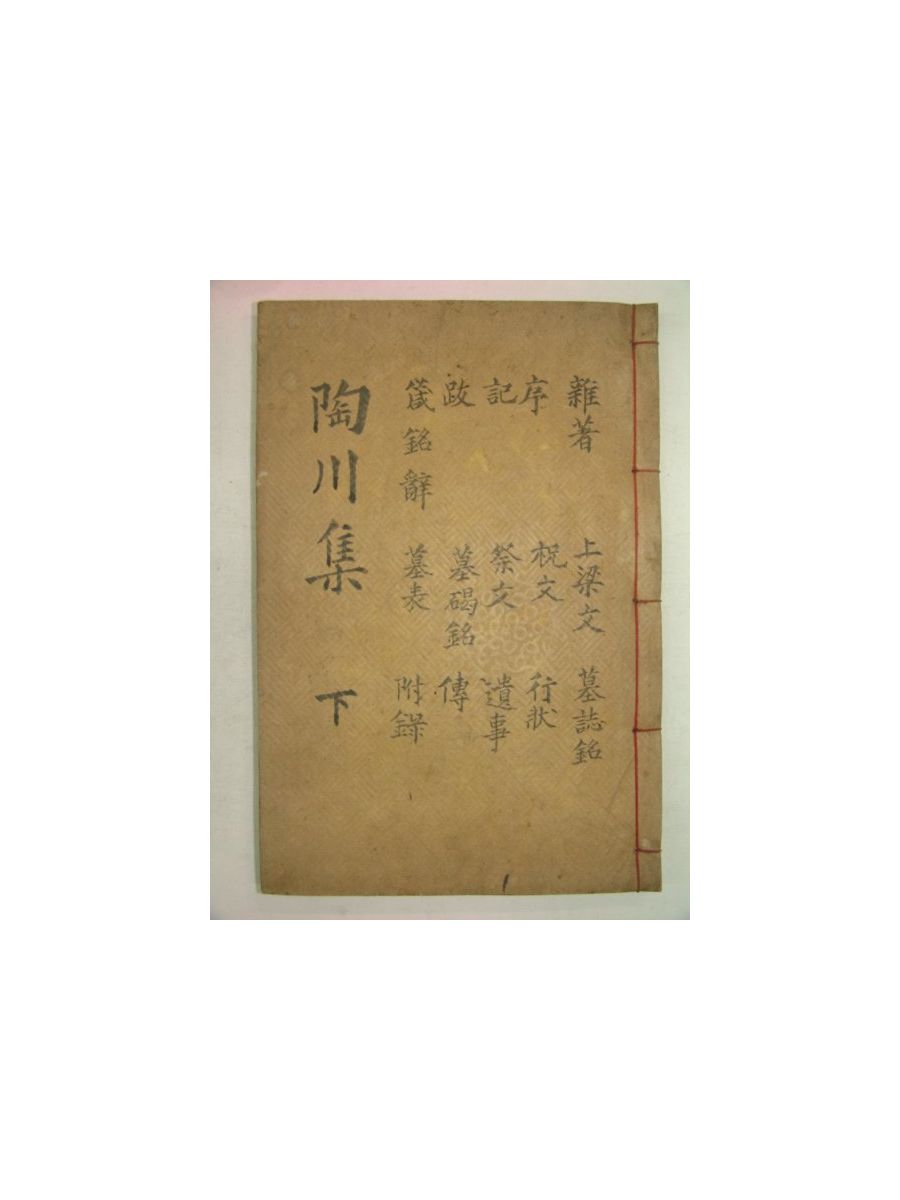 雜著 上梁文 墓誌銘
序 祝文 行狀
記 祭文 遺事
跋 墓碣銘 傳
箴銘辭 墓表 附錄
陶川集 下